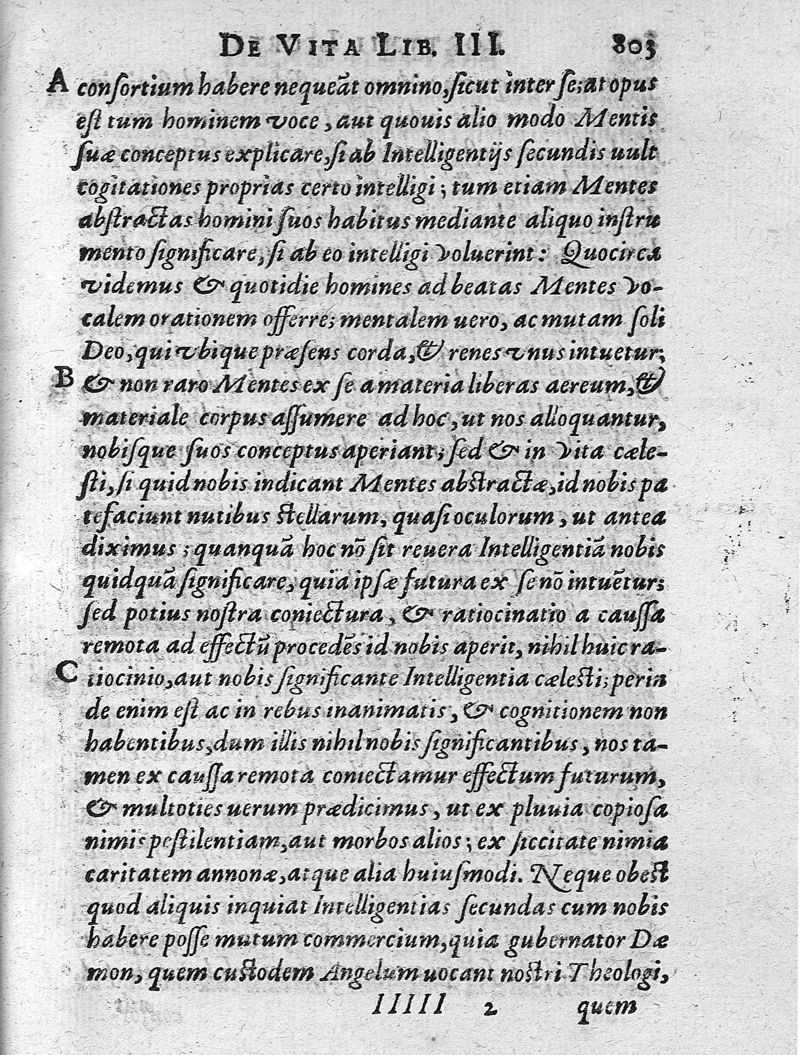 DE VITA LIB. III. 803
A consortium habere nequeãt omnino, sicut inter se; at opus
est tum hominem voce, aut quouis alio modo Mentis
suæ conceptus explicare, si ab Intelligentijs secundis uult
cogitationes proprias certo intelligi; tum etiam Mentes
abstractas homini suos habitus mediante aliquo instru
mento significare, si ab eo intelligi voluerint: Quocirca
videmus & quotidie homines ad beatas Mentes vo-
calem orationem offerre; mentalem uero, ac mutam soli
Deo, qui vbique præsens corda, & renes vnus intuetur;
B & non raro Mentes ex se a materia liberas aereum, &
materiale corpus assumere ad hoc, ut nos alloquantur,
nobisque suos conceptus aperiant; sed & in vita cæle-
sti, si quid nobis indicant Mentes abstractæ, id nobis pa
tefaciunt nutibus stellarum, quasi oculorum, ut antea
diximus; quanquã hoc nõ sit reuera Intelligentiã nobis
quidquã significare, quia ipsæ futura ex se nõ intuẽtur;
sed potius nostra coniectura, & ratiocinatio a caussa
remota ad effectũ procedẽs id nobis aperit, nihil huic ra-
C tiocinio, aut nobis significante Intelligentia cælesti; perin
de enim est ac in rebus inanimatis, & cognitionem non
habentibus, dum illis nihil nobis significantibus, nos ta-
men ex caussa remota coniectamur effectum futurum,
& multoties uerum prædicimus, ut ex pluuia copiosa
nimis pestilentiam, aut morbos alios; ex siccitate nimia
caritatem annonæ, atque alia huiusmodi. Neque obest
quod aliquis inquiat Intelligentias secundas cum nobis
habere posse mutum commercium, quia gubernator Dæ
mon, quem custodem Angelum uocant nostri Theologi,
IIIII 2 quem